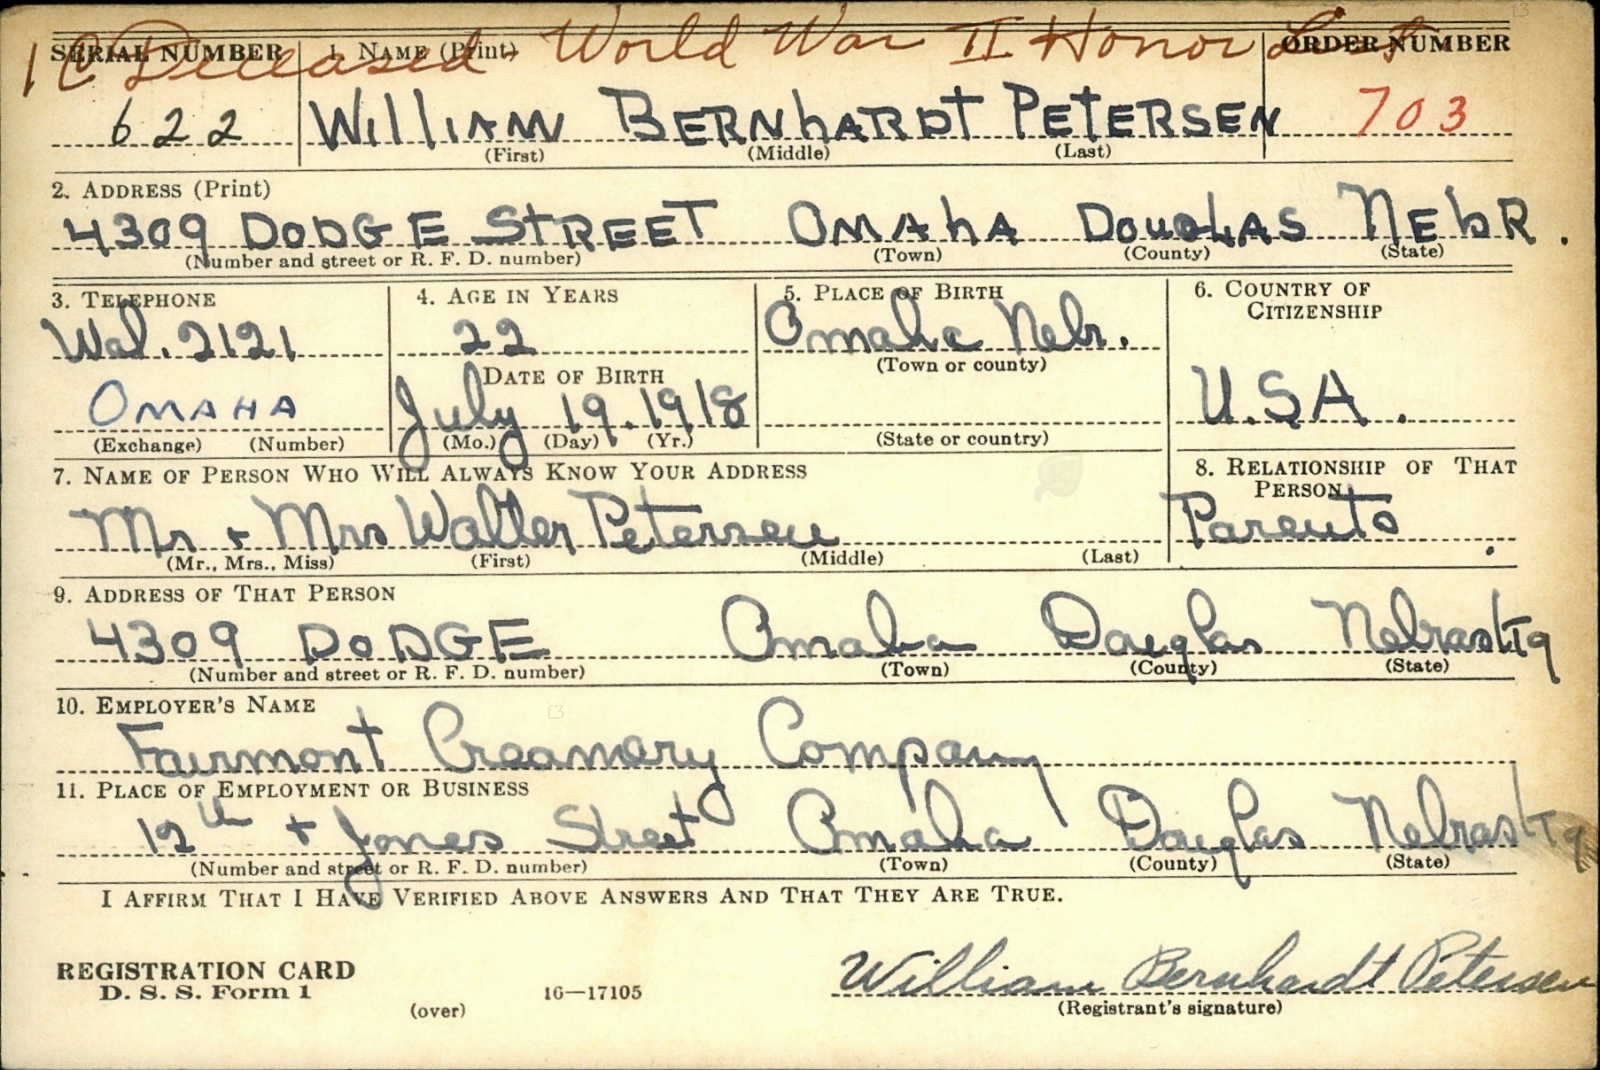 1C Deceased World War II Honor List
SERIAL NUMBER 1. NAME (Print) ORDER NUMBER
622 WilliAM BERNhARDT PETERSEN 703
(First) (Middle) (Last)
2. ADDRESS (Print)
4309 DODGE STREET OMAhA DOUGLAS NEbR.
(Number and street or R. F. D. number) (Town) (County) (State)
3. TELEPHONE 4. AGE IN YEARS 5. PLACE OF BIRTH 6. COUNTRY OF CITIZENSHIP
Wal. 2121 22 Omaha Nebr.
(Town or county)
DATE OF BIRTH
OMAHA July 19. 1918 U.S.A.
(Exchange) (Number) (Mo.) (Day) (Yr.) (State or country)
7. NAME OF PERSON WHO WILL ALWAYS KNOW YOUR ADDRESS 8. RELATIONSHIP OF THAT PERSON
Mr + Mrs Walter Petersen Parents.
(Mr., Mrs., Miss) (First) (Middle) (Last)
9. ADDRESS OF THAT PERSON
4309 DODGE Omaha Douglas Nebraska
(Number and street or R. F. D. number) (Town) (County) (State)
10. EMPLOYER'S NAME
Fairmont Creamery Company
11. PLACE OF EMPLOYMENT OR BUSINESS
12th + Jones Street Omaha Douglas Nebraska
(Number and street or R. F. D. number) (Town) (County) (State)
I AFFIRM THAT I HAVE VERIFIED ABOVE ANSWERS AND THAT THEY ARE TRUE.
REGISTRATION CARD
D. S. S. Form 1
(over) 16—17105
William Bernhardt Petersen
(Registrant's signature)